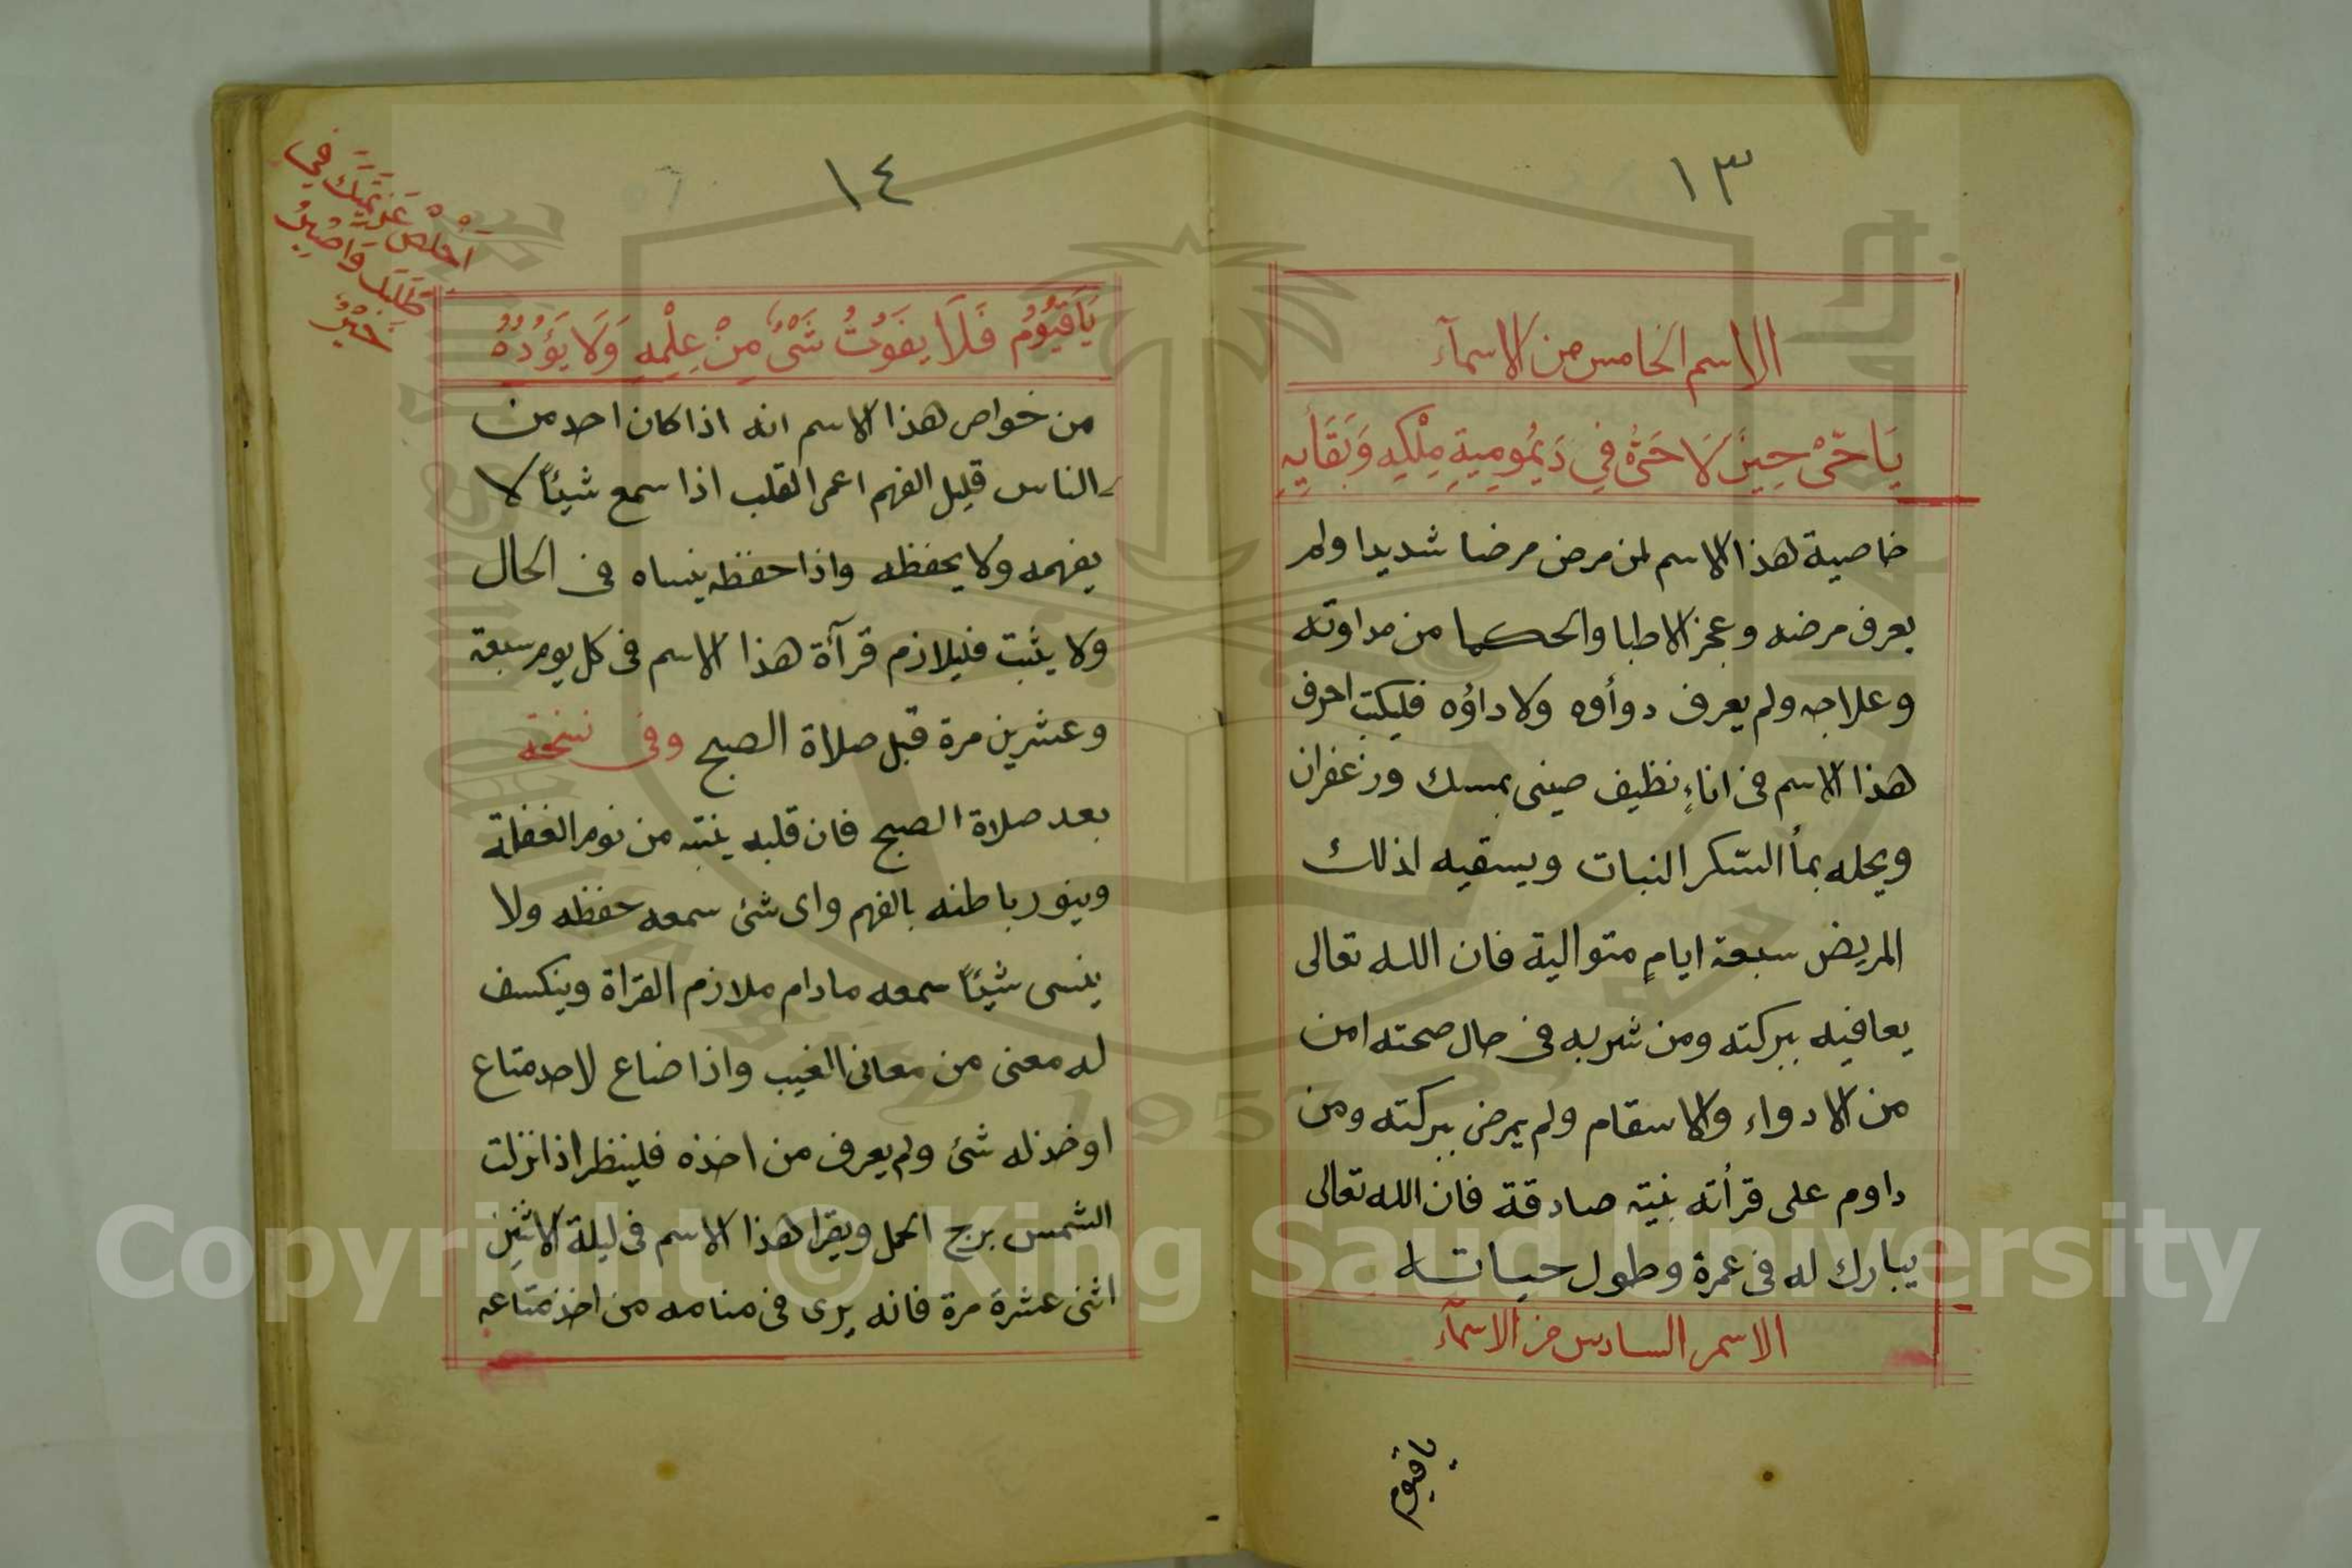 ١٣
الاسم الخامس من الاسمآء
يَا حَىُّ حِينَ لَا حَىَّ فِي دَيْمُومِيَةِ مُلْكِهِ وَبَقَايِهِ
خاصية هذا الاسم لمن مرض مرضا شديدا ولم
يعرف مرضه وعجز الاطبا والحكما من مداوته
وعلاجه ولم يعرف دوأوه ولا داؤه فليكتب احرف
هذا الاسم فى اناءٍ نظيف صينى بمسك وزعفران
ويحله بمأ السّكر النبات ويسقيه لذلك
المريض سبعة ايامٍ متوالية فان الله تعالى
يعافيه ببركته ومن شربه فى حال صحته امن
من الادواء والاسقام ولم يمرض ببركته ومن
داوم على قرأته بنية صادقة فان الله تعالى
يبارك له فى عمرة وطول حياته
الاسم السادس من الاسمآء
ياقيوم
١٤
يَا قَيُّوُمُ فَلَا يَفَوْتُ شَىْءٌ مِنْ عِلْمِهِ وَلَا يَؤُدُهُ
من خواص هذا الاسم انه اذا كان احد من
الناس قليل الفهم اعمى القلب اذا سمع شيئاً لا
يفهمه ولا يحفظه واذا حفظه ينساه فى الحال
ولا يثبت فليلازم قرآة هذا الاسم فى كل يوم سبعة
وعشرين مرة قبل صلاة الصبح وفى نسخة
بعد صلاة الصبح فان قلبه ينتبه من نوم الغفلة
وينور باطنه بالفهم واى شئ سمعه حفظه ولا
ينسى شيئاً سمعه مادام ملازم القراة وينكسف
له معنى من معانى الغيب واذا ضاع لاحد متاع
اوخذ له شئ ولم يعرف من اخذه فلينظر اذا نزلت
الشمس برج الحمل ويقرا هذا الاسم فى ليلة الاثنين
اثنى عشرة مرة فانه يرى فى منامه من اخذ متاعه
طَلَبَك
Copyright © King Saud University
1957